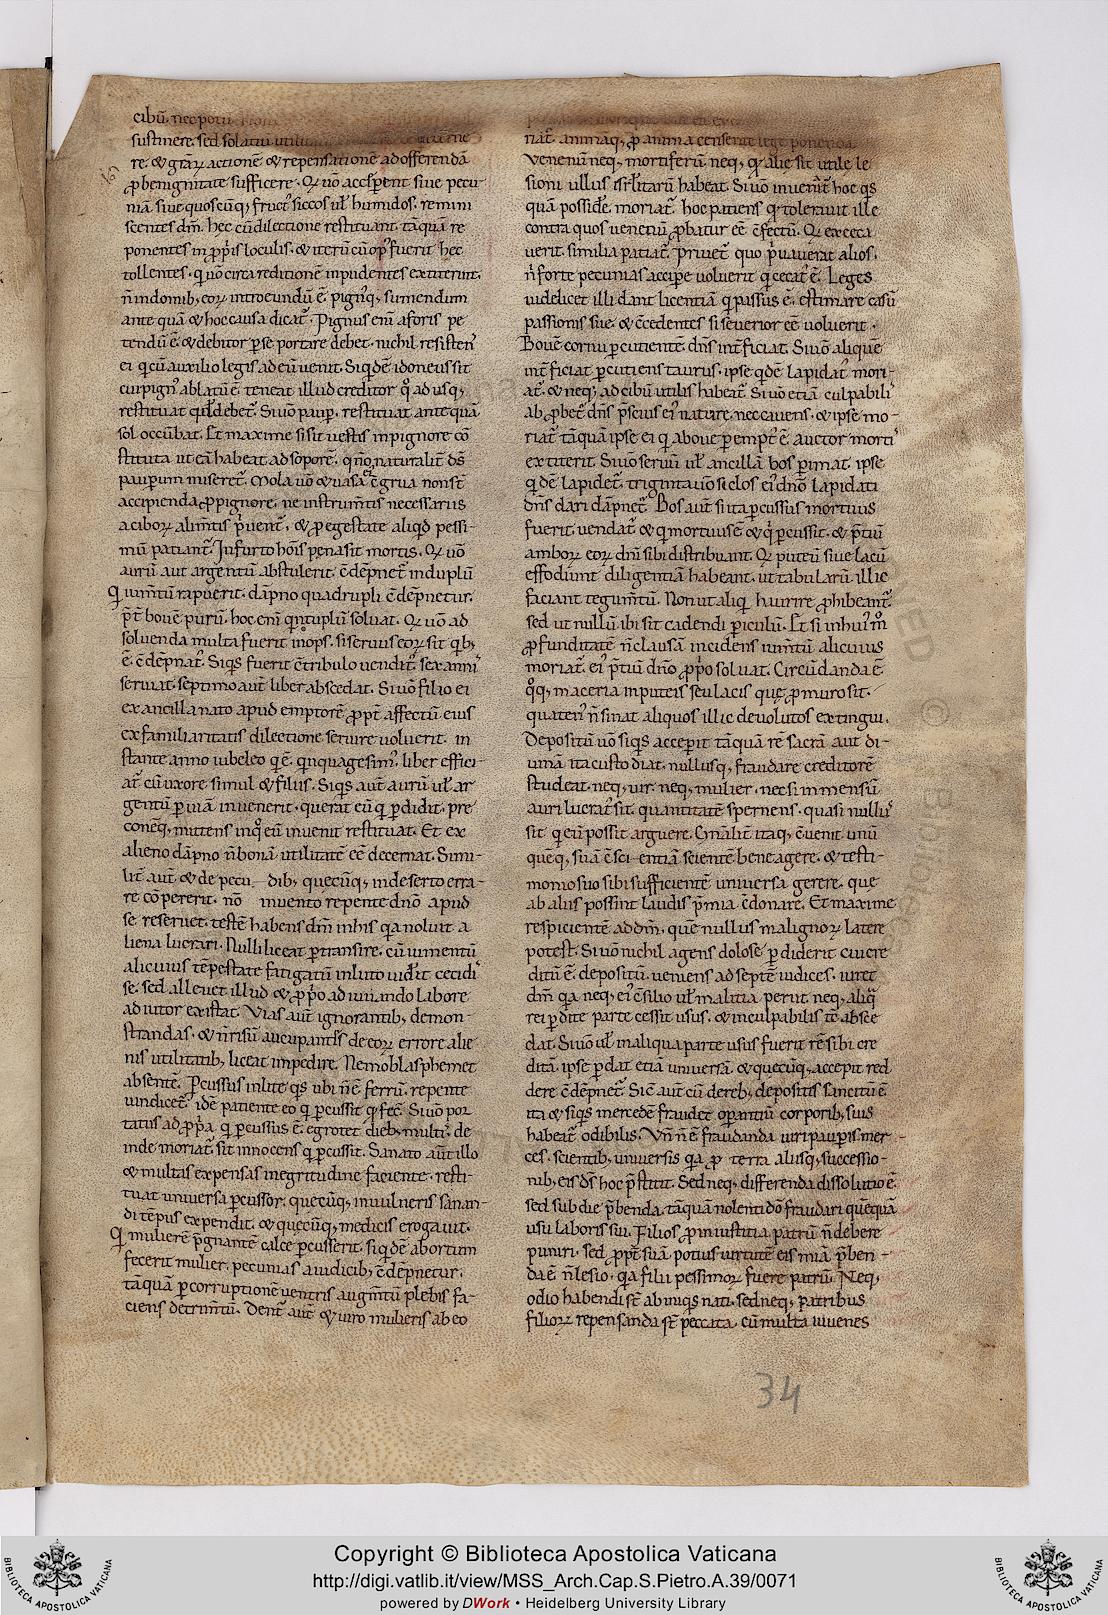 cibū. nec potū
sustinere. sed solatiū utilitatis
re. & gr̄aꝝ actionē & repensationē ad offerendā
ꝓ benignitate sufficere. Qͥ uō acceꝑent siue pecu
niā siue quoscūq; fructꝰ siccos ul' humidos. remini
scentes dm̄. hec cū dilectione restituant. tāquā re
ponentes in ꝓpͥis loculis. & iterū cū opꝰ fuerit hec
tollentes. qͥ uō circa reditionē inpudentes extiterint.
n̄ in domib; eoꝝ introeundū ē. pignꝰq; sumendum
ante quā & hoc causa dicat᷑. Pignus enī aforis pe
tendū ē. & debitor ꝑ se portare debet. nichil resistenſ
ei qͥ cū auxilio legis ad eū uenit. Siqͥdē idoneus sit
cui pignꝰ ablatū ē. teneat illud creditor qͦ ad usq;
restituat qd̄ debet᷑. Si uō paup̱. restituat ante quā
sol occūbat. Et maxime si sit uestis in pignore cō
stituta ut eā habeat ad soporē. qͥ no naturalit̄ d̄s
pauꝑum miseret᷑. Mola uō & uasa ē grua non st̄
accipienda ꝓ pignore. ne instrum̄tis necessariis
a ciboꝝ alim̄tis pͥuent᷑. & ꝓ egestate aliqͥd pessi-
mū patiant᷑. In furto ho̅is pena sit mortis. Qͥ uō
aurū aut argentū abstulerit. c̄dēpnet᷑ in duplū
Qͥ ium̄tū rapuerit. dāpno quadrupli c̄dēpnetur.
p̄t bouē purū. hoc enī qͥntuplū soluat. Qͥ uō ad
soluenda multa fuerit inops. si seruus eoꝝ sit qͥb;
ē. c̄dēpnat᷑. Siqͥs fuerit c̄tribulo uenditꝰ. sex annis
seruiat. septimo aut̄ liber abscedat. Si uō filio ei
ex ancilla nato apud emptorē ꝓpt̄ affectū eius
ex familiaritatis dilectione seruire uoluerit. in
stante anno iubeleo qͥ ē. qͥnquagesimꝰ. liber effici
at᷑ cū uxore simul & filiis. Siqͥs aut̄ aurū ul' ar
gentū ꝑ uiā inuenerit. querat eū qͥ ꝑdidit. pre
coneq; mittens in qͦ eū inuenit restituat. Et ex
alieno dāpno n̄ bonā utilitatē eē decernat. Simi-
lit̄ aut̄ & de pecudib; quecūq; in deserto erra-
re cōpererit. nō inuento repente dn̄o apud
se reseruet. testē habens dm̄ in his qͥa noluit a
liena lucrari. Nulli liceat ꝑtransire. cū iumentū
alicuius tēpestate fatigatū in luto uid̄it cecidis
se. sed alleuet illud & ꝓpͥo adiuuando labore
adiutor existat. Vias aut̄ ignorantib; demon-
strandas. & n̄ risū aucupantes de eoꝝ errore alie
nis utilitatib; liceat impedire. Nemo blasphemet
absentē. Pcussus in lite qͥs ubi n̄ ē ferrū. repente
uindicet᷑. idē patiente eo qͥ ꝑcussit qͥ fec̄. Si uō por
tatus ad ꝓpͥa qͥ ꝑcussus ē. egrotet dieb; multis. de
inde moriat᷑. sit innocens qͥ ꝑcussit. Sanato aut̄ illo
& multas expensas in egritudine faciente. resti
tuat uniuersa ꝑcussor. quecūq; in uulneris sanan-
di tēpus expendit. & quecūq; medicis erogauit.
Qͥ mulierē p̄gnantē calce ꝑcusserit. siqͥdē abortum
fecerit mulier. pecunias a iudicib; c̄dēpnetur.
tāquā ꝑ corruptionē uentris augm̄tū plebis fa-
ciens detrim̄tū. Dent᷑ aut̄ & uiro mulieris ab eo
riat᷑. animāq; ꝓ anima censente lege ponenda.
Venenū neq; mortiferū neq; qͥ alie sit utile le
sioni ullus isrl'itarū habeat. Si uō inuent᷑ hoc qͥs
quā posside. moriat᷑. hoc patiens qͥ tolerauit ille
contra quos uenenū ꝓbatur eē c̄fectū. Qͥ exceca
uerit. similia patiat᷑. pͥuet᷑ quo pͥuauerat alios.
n̄ forte pecunias acciꝑe uoluerit qͥ cecatꝰ ē. Leges
uidelicet illi dant licentiā qͥ passus ē. estimare casū
passionis sue. & c̄cedentes si seuerior eē uoluerit.
Bouē cornu ꝑcutientē. dn̄s int̄ficiat. Si uō aliquē
int̄ficiat ꝑcutiens taurus. ipse qͥdē lapidatꝰ mori-
at᷑. & neq; ad cibū utilis habeat᷑. Si uō etiā culpabilis
ab ꝓbet᷑ dn̄s p̄scius eiꝰ nature. nec cauens. & ipse mo-
riat᷑. tāquā ipse ei qͥ a boue ꝑemptꝰ ē. auctor mortis
extiterit. Si uō seruū ul' ancillā bos ꝑimat. ipse
qͥdē lapidet᷑. triginta uō siclos eiꝰ dn̄o lapidati
dn̄s dari dāpnet᷑. Bos aut̄ si ita ꝑcussus mortuus
fuerit. uendat᷑. & qͥ mortuus ē & qͥ ꝑcussit. & p̄tiū
amboꝝ eoꝝ dn̄i sibi distribuant. Qͥ puteū siue lacū
effodiunt diligentiā habeant. ut tabularū illic
faciant tegum̄tū. Non ut aliqͥ haurire ꝓhibeant᷑.
sed ut nullū ibi sit cadendi ꝑiculū. Et si in huiꝰm̄
ꝓfunditatē n̄ clausā incidens ium̄tū alicuius
moriat᷑. eiꝰ p̄tiū dn̄o ꝓpͥo soluat. Circūdanda ē
qͦq; maceria in puteis seu lacis quę ꝓ muro sit.
quatenꝰ n̄ sinat aliquos illic deuolutos extingui.
Depositū uō siqͥs acceꝑit tāquā rē sacrā aut di-
uinā ita custodiat. nullusq; fraudare creditorē
studeat. neq; uir. neq; mulier. nec si inmensū
auri lucrat᷑ sit. quantitatē spernens. quasi nullus
sit qͥ eū possit arguere. Gn̄alit̄ itaq; c̄uenit unū
quēq; suā c̄scientiā scientē bene agere. & testi-
monio suo sibi sufficientē uniuersa gerere. que
ab aliis possint laudis p̄mia c̄donare. Et maxime
respicientē ad dm̄. quē nullus malignoꝝ latere
potest. Si uō nichil agens dolose ꝑdiderit cui cre
ditū ē. depositū. ueniens ad septē iudices. iuret
dm̄ qͥa neq; eiꝰ c̄silio ul' malitia periit. neq; aliqͣ
rei ꝑdite parte cessit usus. & inculpabilis tē absce
dat. Si uō ul' in aliqua parte usus fuerit rē sibi cre
ditā. ipse ꝑdat etiā uniuersā & quecūq; accepit red
dere c̄dēpnet᷑. Sic aut̄ cū de reb; depositis sancitū ē.
ita & siqͥs mercedē fraudet oꝑantiū corporib; suis
habeat᷑ odibilis. Vn̄ n̄ ē fraudanda uiri pauꝑis mer
ces. scientib; uniuersis qͥa ꝓ terra aliisq; successio-
nib; eis d̄s hoc p̄stitit. Sed neq; differenda dissolutio ē.
sed sub die p̄benda. tāquā nolenti dō fraudari quēquā
usu laboris sui. Filios ꝓ iniustitia patrū n̄ debere
puniri. sed ꝓpt̄ suā potius uirtutē eis miā p̄ben-
dā ē n̄ lesio. qͥa filii pessimoꝝ fuere patrū. Neq;
odio habendi st̄ ab iniqͥs nati. sed neq; patribus
filioꝝ repensanda st̄ peccata. cū multa iuuenes
34
Copyright © Biblioteca Apostolica Vaticana
http://digi.vatlib.it/view/MSS_Arch.Cap.S.Pietro.A.39/0071
powered by DWork • Heidelberg University Library